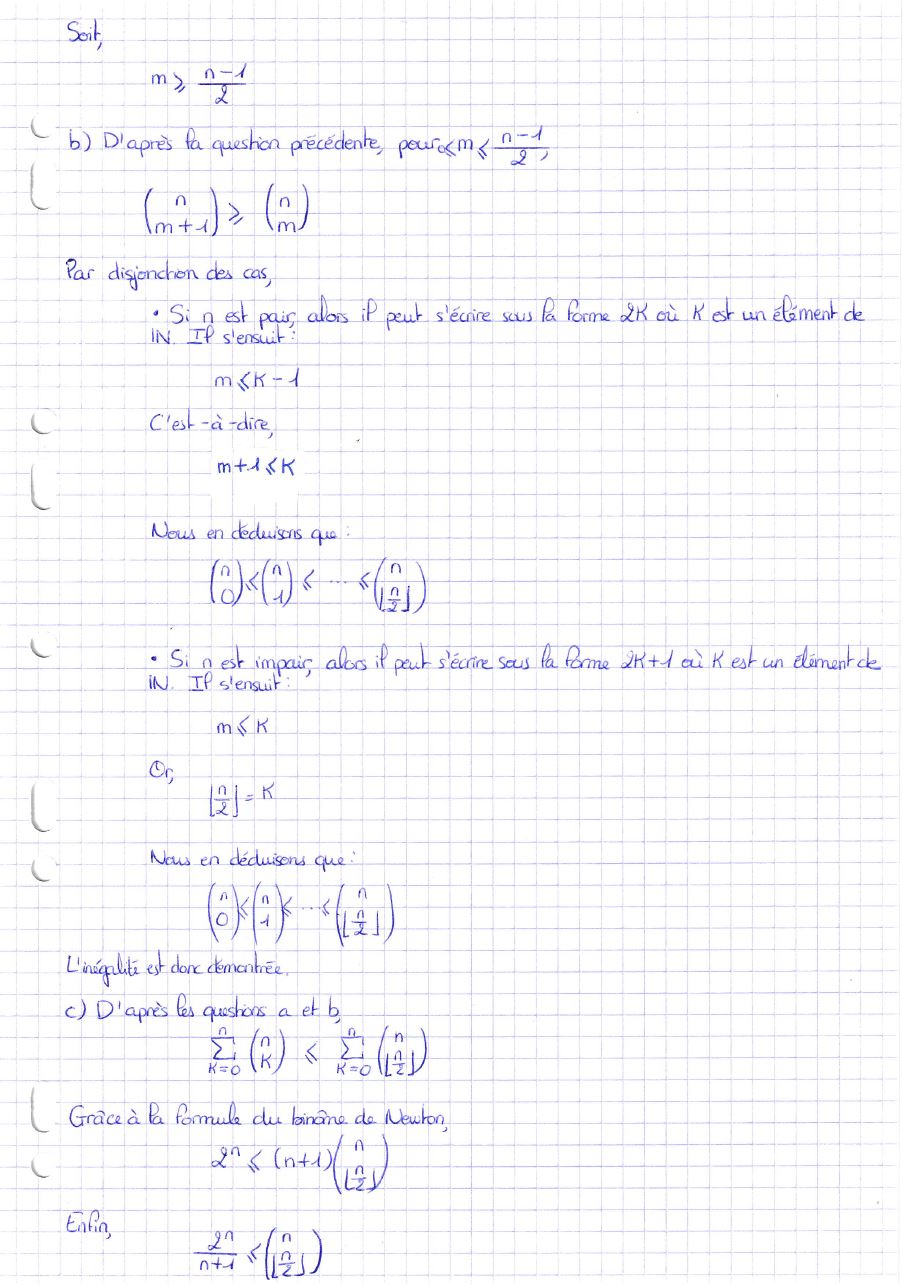 Soit,
m ⩾ (n-1)/2
b) D'après la question précédente, pour 0⩽m⩽ (n-1)/2,
(n m+1) ⩾ (n m)
Par disjonction des cas,
• Si n est pair, alors il peut s'écrire sous la forme 2K où K est un élément de
IN. Il s'ensuit :
m ⩽ K - 1
C'est-à-dire,
m+1 ⩽ K
Nous en déduisons que :
(n 0) ⩽ (n 1) ⩽ ... ⩽ (n ⌊n/2⌋)
• Si n est impair, alors il peut s'écrire sous la forme 2K+1 où K est un élément de
IN. Il s'ensuit :
m ⩽ K
Or,
⌊n/2⌋ = K
Nous en déduisons que :
(n 0) ⩽ (n 1) ⩽ ... ⩽ (n ⌊n/2⌋)
L'inégalité est donc démontrée.
c) D'après les questions a et b,
∑_{K=0}^{n} (n K) ⩽ ∑_{K=0}^{n} (n ⌊n/2⌋)
Grâce à la formule du binôme de Newton,
2^n ⩽ (n+1) (n ⌊n/2⌋)
Enfin,
2^n/(n+1) ⩽ (n ⌊n/2⌋)